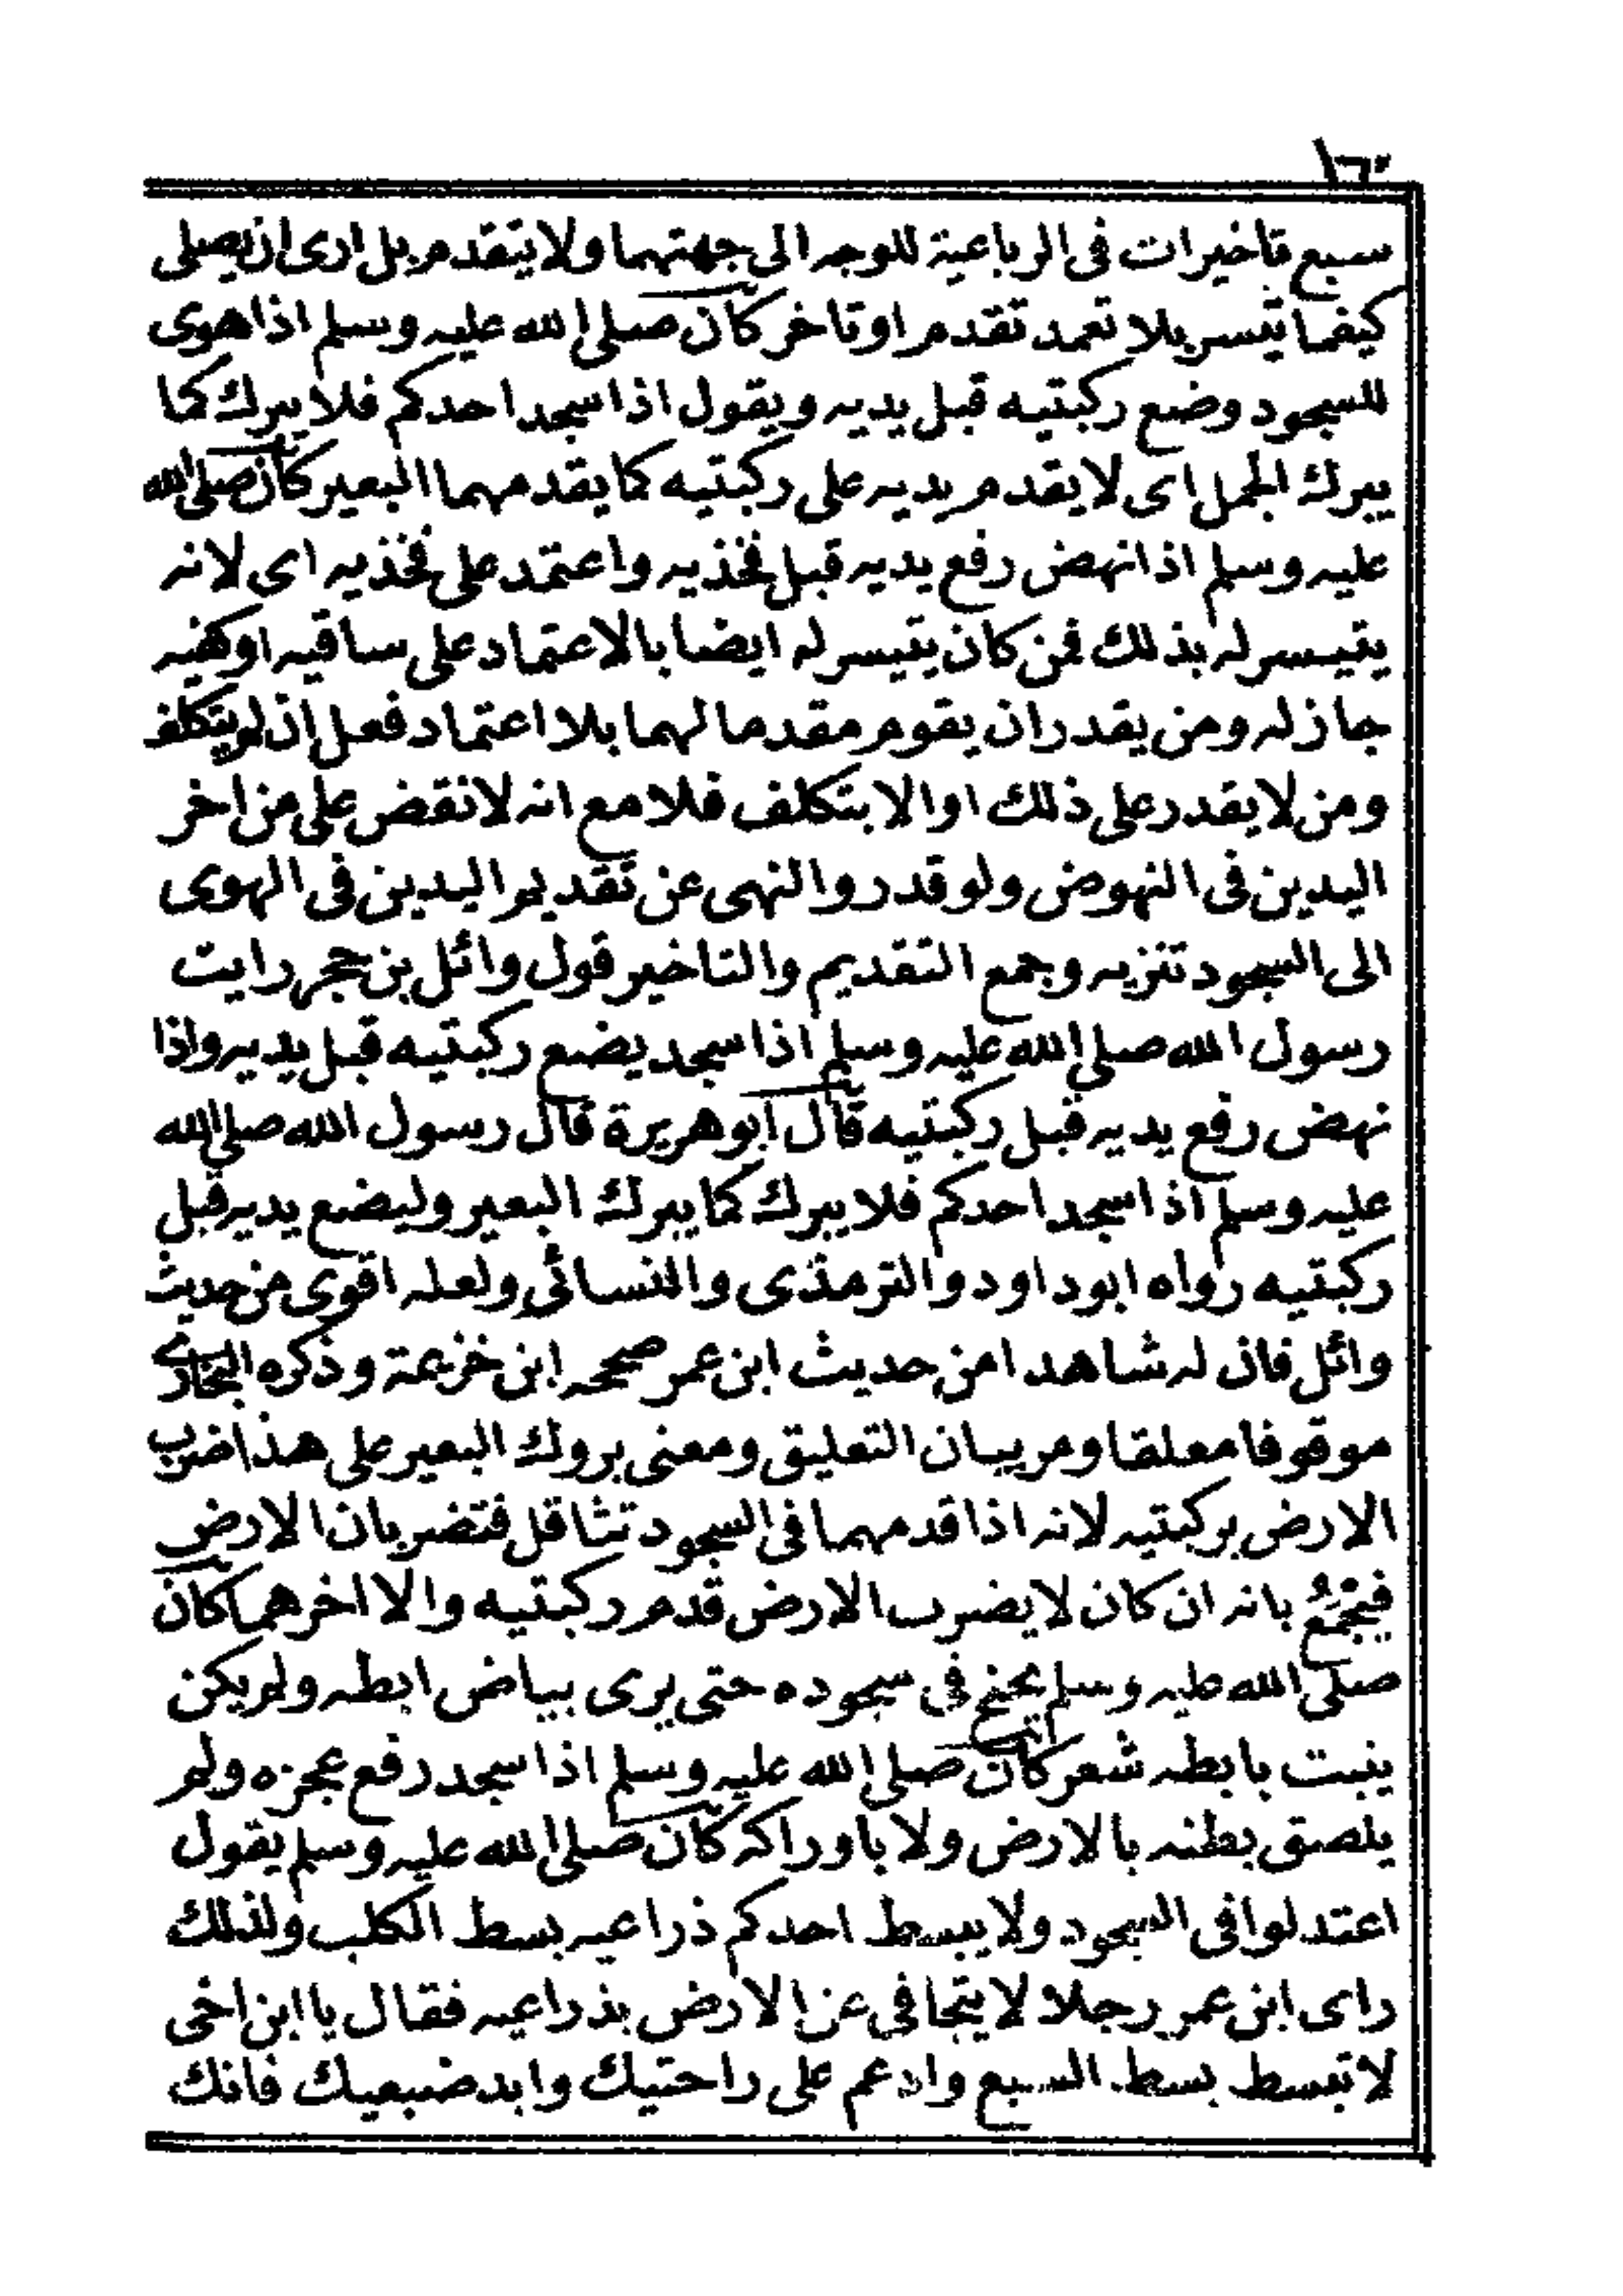 ١٦٠
سبع تاخيرات فى الرباعية للوجه الى جهتهما ولا يتقدم بل ارى ان يصلى
كيفما تيسر بلا تعمد تقدم او تاخر كان صلى الله عليه وسلم اذا هوى
للسجود وضع ركبتيه قبل يديه ويقول اذا سجد احدكم فلا يبرك كما
يبرك الجمل اى لا يقدم يديه على ركبتيه كما يقدمهما البعير كان صلى الله
عليه وسلم اذا نهض رفع يديه قبل فخذيه واعتمد على فخذيه اى لانه
يتيسر له بذلك فمن كان يتيسر له ايضا بالاعتماد على ساقيه او كفيه
جاز له ومن يقدر ان يقوم مقدما لهما بلا اعتماد فعل ان لم يتكلف
ومن لا يقدر على ذلك او الا بتكلف فلا مع انه لا نقض على من اخر
اليدين فى النهوض ولو قدر والنهى عن تقديم اليدين فى الهوى
الى السجود تنزيه وجمع التقديم والتاخير قول وائل بن حجر رايت
رسول الله صلى الله عليه وسلم اذا سجد يضع ركبتيه قبل يديه واذا
نهض رفع يديه قبل ركبتيه قال ابو هريرة قال رسول الله صلى الله
عليه وسلم اذا سجد احدكم فلا يبرك كما يبرك البعير وليضع يديه قبل
ركبتيه رواه ابو داود والترمذى والنسائى ولعله اقوى من حديث
وائل فان له شاهدا من حديث ابن عمر صححه ابن خزيمة وذكره البخارى
موقوفا معلقا ومر بيان التعليق ومعنى بروك البعير على هذا ضرب
الارض بركبتيه لانه اذا قدمهما فى السجود تثاقل فتضربان الارض
فيُجْمَعُ بانه ان كان لا يضرب الارض قدم ركبتيه والا اخرهما كان
صلى الله عليه وسلم يجنح فى سجوده حتى يرى بياض ابطه ولم يكن
ينبت بابطه شعر كان صلى الله عليه وسلم اذا سجد رفع عجزه ولم
يلصق بطنه بالارض ولا باوراكه كان صلى الله عليه وسلم يقول
اعتدلوا فى السجود ولا يبسط احدكم ذراعيه بسط الكلب ولذلك
راى ابن عمر رجلا لا يتجافى عن الارض بذراعيه فقال يا ابن اخى
لا تبسط بسط السبع وادعم على راحتيك وابد ضبعيك فانك